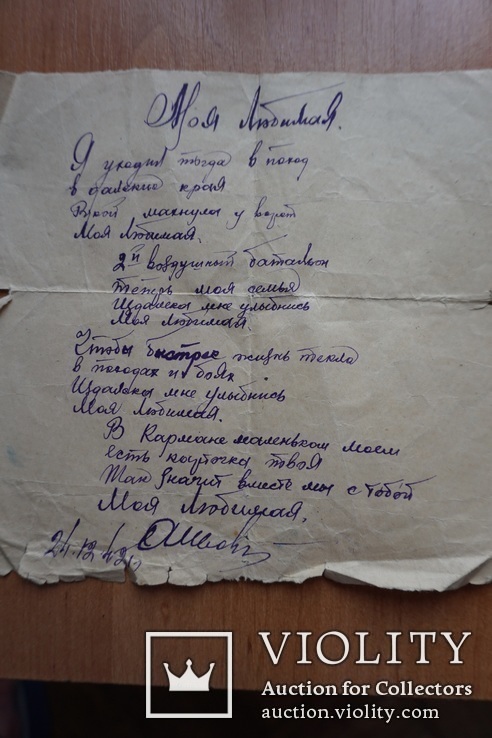 Моя Любимая.
Я уходил тогда в поход
в далекие края
Рукой махнула у ворот
Моя Любимая.
2й воздушный батальон
теперь моя семья
Издалека мне улыбнись
Моя любимая
Чтобы быстрее жизнь текла
в походах и боях.
Издалека мне улыбнись
Моя любимая.
В Кармане маленьком моем
есть карточка твоя
Так значит вместе мы с тобой
Моя Любимая.
24.12.42
VIOLITY
Auction for Collectors
auction.violity.com